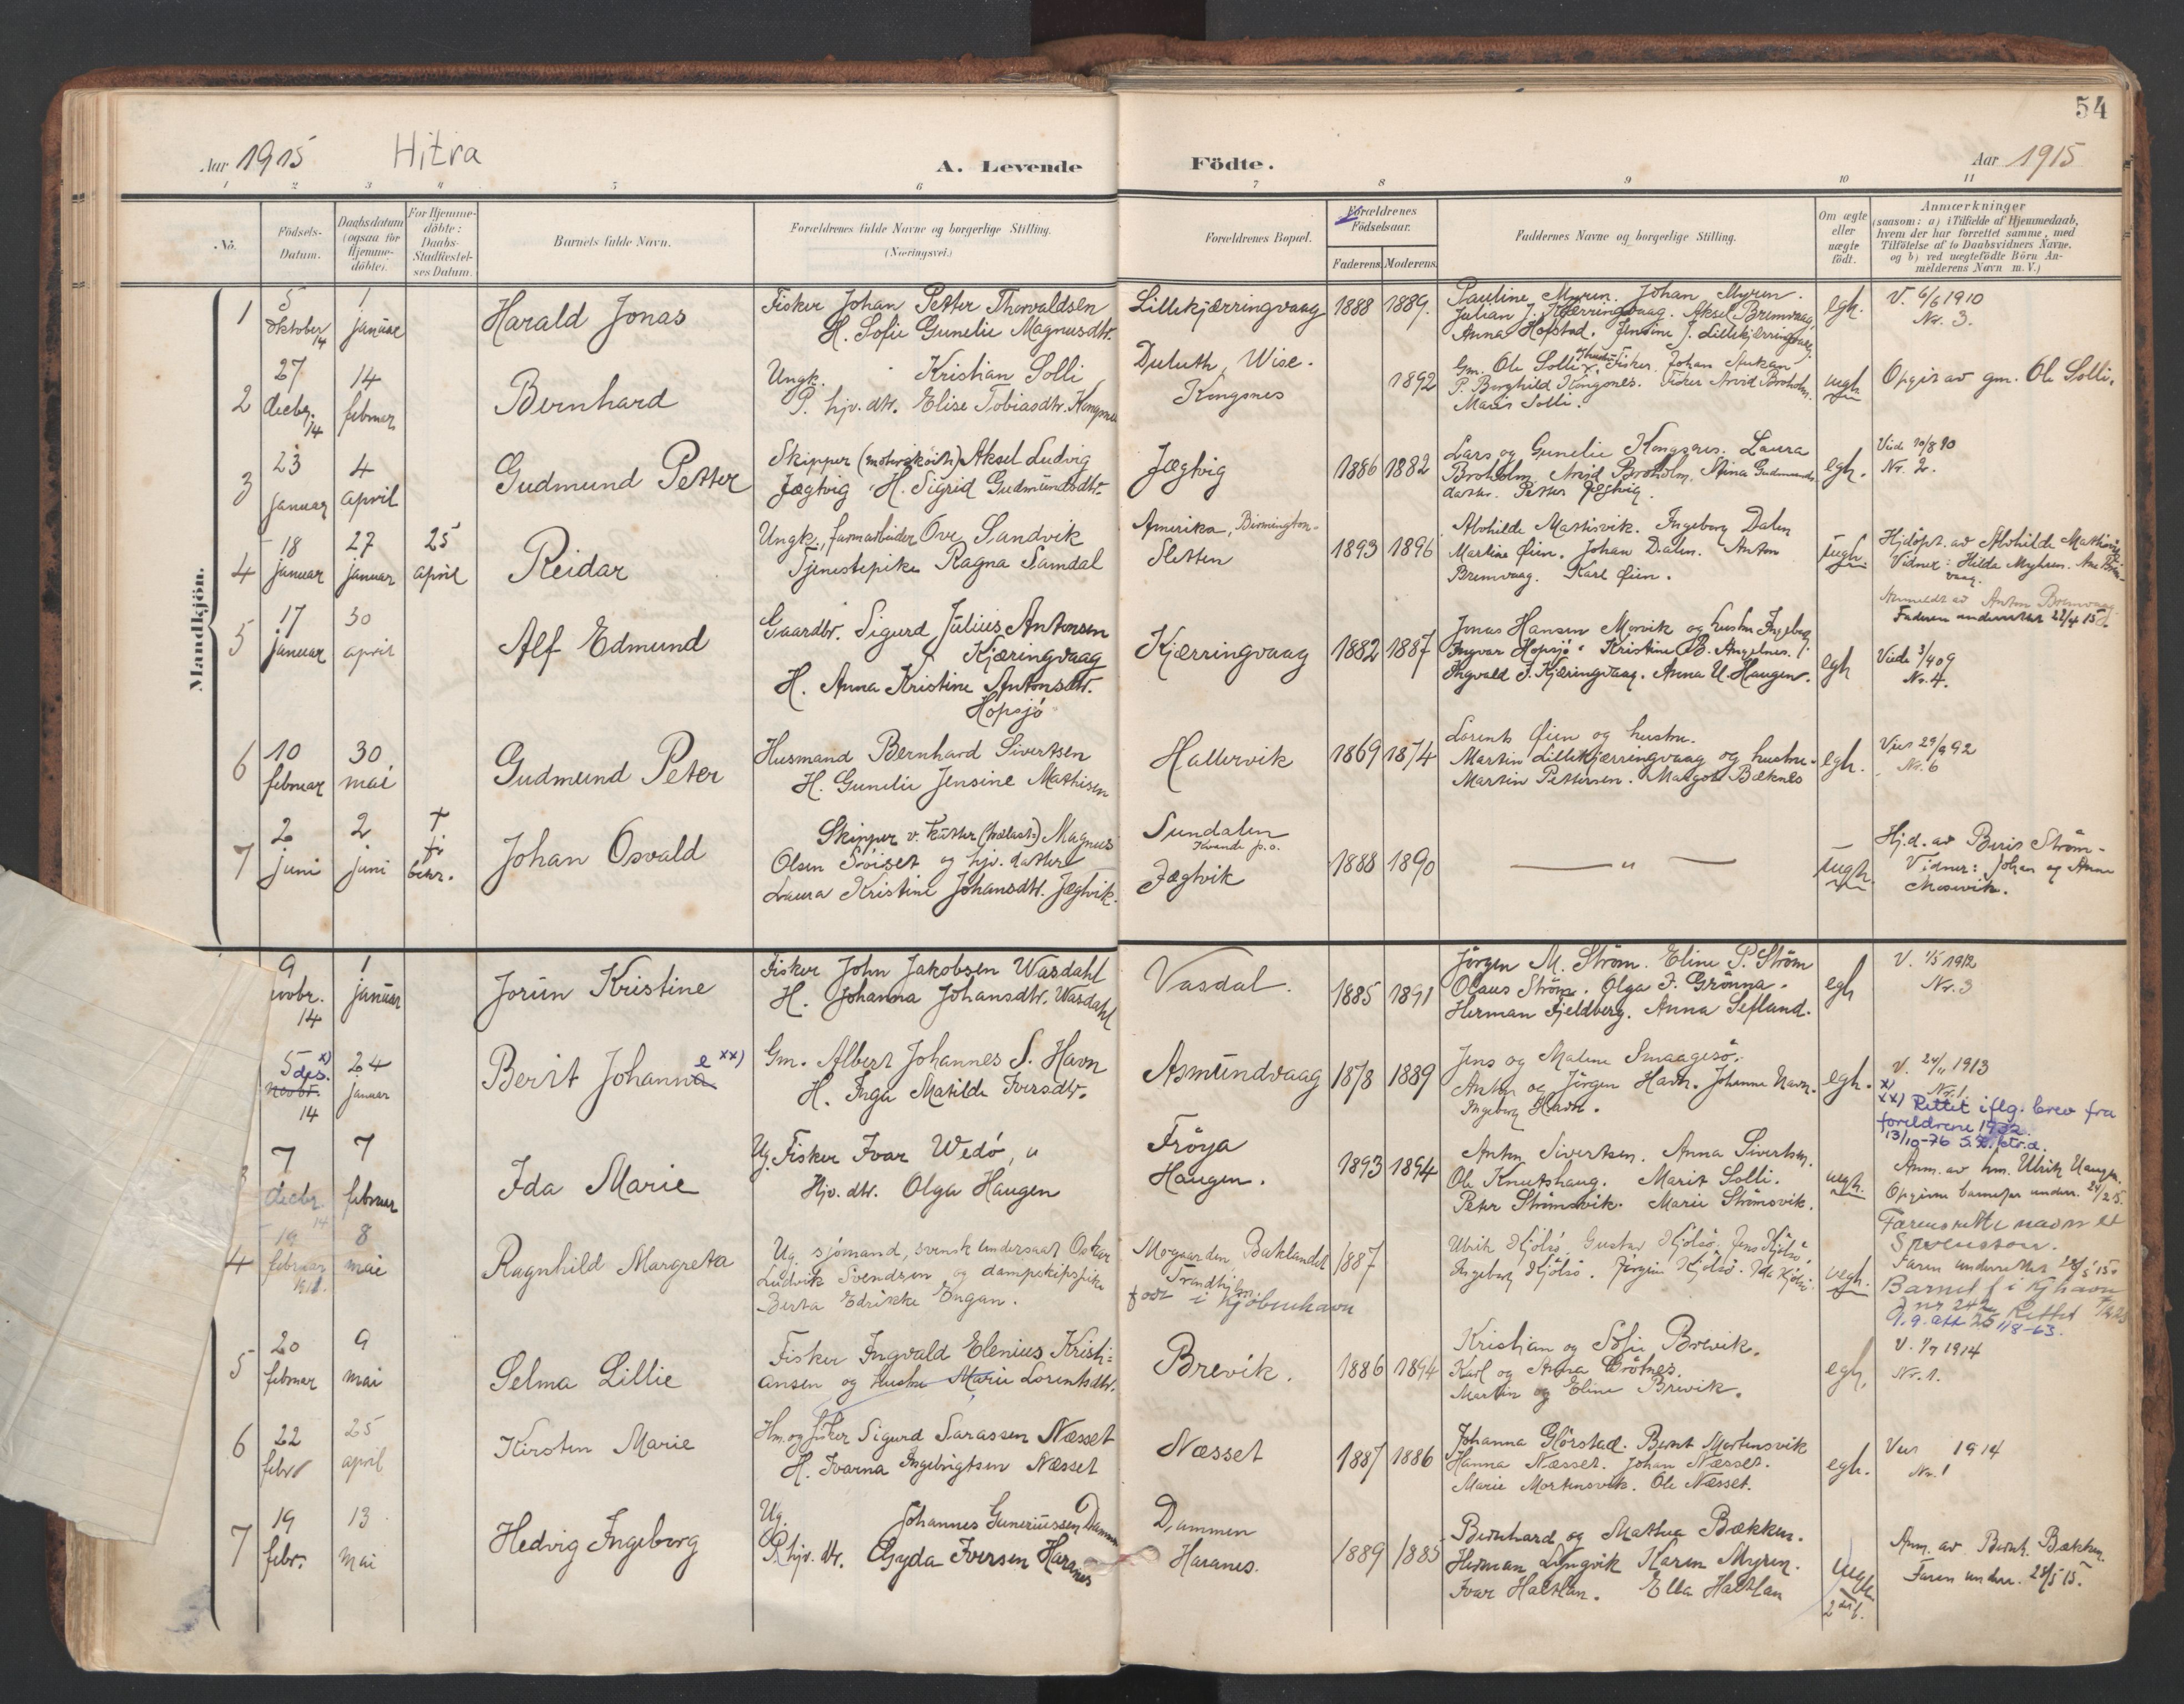 54
Aar 1915 Hitra A. Levende Födte. Aar 1915
1 2 3 4 5 6 7 8 9 10 11
No.
Födsels-
Datum.
Daabsdatum
(ogsaa for
Hjemme-
döbte).
For Hjemme-
döbte:
Daabs-
Stadfæstel-
ses Datum.
Barnets fulde Navn.
Forældrenes fulde Navne og borgerlige Stilling.
(Næringsvei.)
Forældrenes Bopæl.
Forældrenes
Födselsaar.
Faderens. Moderens.
Faddernes Navne og borgerlige Stilling.
Om ægte
eller
uægte
födt.
Anmærkninger
(saasom: a) i Tilfælde af Hjemmedaab,
hvem der har forrettet samme, med
Tilföielse af to Daabsvidners Navne.
og b) ved uægtefödte Börn An-
melderens Navn m. V.)
Mandkjön.
1
5
oktober
14
1
januar
Harald Jonas
Fisker Johan Petter Thorvaldsen
H. Sofie Gunelie Magnusdtr.
Lillekjærringvaag
1888 1889.
Pauline Myren. Johan Myren.
Julian J. Kjærringvaag. Aksel Bremvaag
Anna Hofstad. Jensine J. Lillekjærringvaag.
egh.
V. 6/6 1910
Nr. 3.
2
27
decbr.
14
14
februar
Bernhard
Ungk. Kristian Solli
P. hjv. dtr. Elise Tobiasdtr. Kongsnes
Duluth, Wise.
Kongsnes
1892
Gm. Ole Solli Fisker Johan
P. Borghild Kongsnes. Fisker Arvid Broholm.
Marit Solli.
uegh.
Opgit av gm. Ole Solli.
3
23
januar
4
april
Gudmund Petter
Skipper (motorskøite) Aksel Ludvig
Jægtvig H. Sigrid Gudmundsdtr.
Jægtvig
1886 1882
Lars og Gunelie Kongsnes. Laura
Broholm. Arvid Broholm. Stina Gudmunds
datter. Petter Jægtvig.
egh.
Viede 10/8 10
Nr. 2.
4
18
januar
27
januar
25
april
Reidar
Ungk., farmarbeider Ove Sandvik
Tjenestepike Ragna Samdal
Amerika, Birmington-
Sletten
1893 1896
Alvhilde Mastisvik. Ingeborg Dalen
Martine Øien. Johan Dalen. Anton
Bremvaag. Karl Øien.
uegh.
Hjdöpt. av Alvhilde
Vidner: Hilda Myhren.
Anmeldt av Anton Bremvaag
Faderen underrettet 22/4 15.
5
17
januar
30
april
Alf Edmund
Gaardbr. Sigurd Julius Antonsen
Kjæringvaag
H. Anna Kristine Antonsdtr.
Hopsjö
Kjærringvaag
1882 1887
Jonas Hansen Morvik og hustru Ingeborg
Ingvar Hopsjö. Kristine B. Angelnes.
Ingvald J. Kjæringvaag. Anna U. Haugen.
egh
Viede 3/4 09
Nr. 4.
6
10
februar
30
mai
Gudmund Peter
Husmand Bernhard Sivertsen
H. Gunelie Jensine Mathisen
Hallervik
1869 1874
Lorents Øien og hustru.
Martin Lillekjærringvaag og hustru.
Martin Pettersen. Margot Bæknes
egh.
Viet 29/9 92
Nr. 6
7
2
juni
2
juni
†
før
bekr.
Johan Osvald
Skipper v. kutter Magnus
Olsen Söiset og hjv. datter
Laura Kristine Johansdtr. Jægtvik.
Sundalen
Kvande p.o.
Jægtvik
1888 1890
— " —
uegh.
Hj.d. av Beris Ström-
Vidner: Johan og Anne
Mosvik.
9
novbr.
14
1
januar
Jorun Kristine
Fisker John Jakobsen Wasdahl
H. Johanna Johansdtr. Wasdahl
Vasdal.
1885 1891
Jörgen M. Ström. Eline P. Ström
Olaus Ström. Olga J. Grönna.
Herman Fjeldberg. Anna Sefland.
egh
V. 1/5 1912
Nr. 3
5 des. x)
novbr.
14
24
januar
Berit Johanna e xx)
Gm. Albert Johannes S. Havn
H. Inga Matilde Iversdtr.
Asmundvaag
1878 1889
Jens og Malene Smaagesö.
Anton og Jörgen Havn. Johanna Havn.
Ingeborg Havn.
egh.
V. 24/11 1913
Nr. 1.
x)
xx) Rettet iflg. brev fra
foreldrene 1932.
13/10-76
3
7
decbr.
14
7
februar
Ida Marie
Ug. Fisker Ivar Wedö, u
Hjv. dtr. Olga Haugen
Fröya
Haugen.
1893 1894
Anton Sivertsen. Anna Sivertsen.
Ole Knutshaug. Marit Solli.
Peter Strömsvik. Marie Strömsvik.
uegh.
Anm. av hm. Ulrik Haugen.
Opgivne barnefar underr. 24/2 15.
4
19
februar
8
mai
Ragnhild Margreta
Ug. sjömand, svensk undersaat Oskar
Ludvik Svendsen og dampskipspike
Berta Edrikke Engan.
Mogaarden, Baklandet
Trondhjem.
født i Kjöbenhavn
1887
Ulrik Hjölsö. Gustav Hjölsö. Jens Hjölsö
Ingeborg Hjölsö. Jörgine Hjölsö. Ida Hjölsö.
uegh.
Farens rette navn er
Svensson.
Faren underrettet 28/5 15.
Barnet f i Kjhavn
5
20
februar
9
mai
Selma Lillie
Fisker Ingvald Elenius Kristi=
ansen og hustru Marie Lorentsdtr.
Brevik.
1886 1894
Kristian og Sofie Brevik.
Karl og Anna Grötnes.
Martin og Eline Brevik.
egh.
V. 1/7 1914
Nr. 1.
6
22
febr.
25
april
Kirsten Marie
Hm. og fisker Sigurd Sarassen Næsset
H. Ivarna Ingebrigtsen Næsset
Næsset
1887 1886
Johanna Glörstad. Bernt Mortensvik
Hanna Næsset. Johan Næsset.
Marie Mortensvik. Ole Næsset.
egh.
Viet 1914
Nr. 1
7
19
febr.
13
mai
Hedvig Ingeborg
Ug. Johannes Guneriussen Dammen
P. hjv. dtr. Gyda Iversen Harsnes
Dammen
Haranes.
1889 1885
Bernhard og Mathea Bækken.
Herman Lyngvik Karen Myren.
Ivar Haltlan. Ella Haltlan
uegh.
2det f.
Anm. av Bernh. Bækken.
Faren underr. 28/5 15.